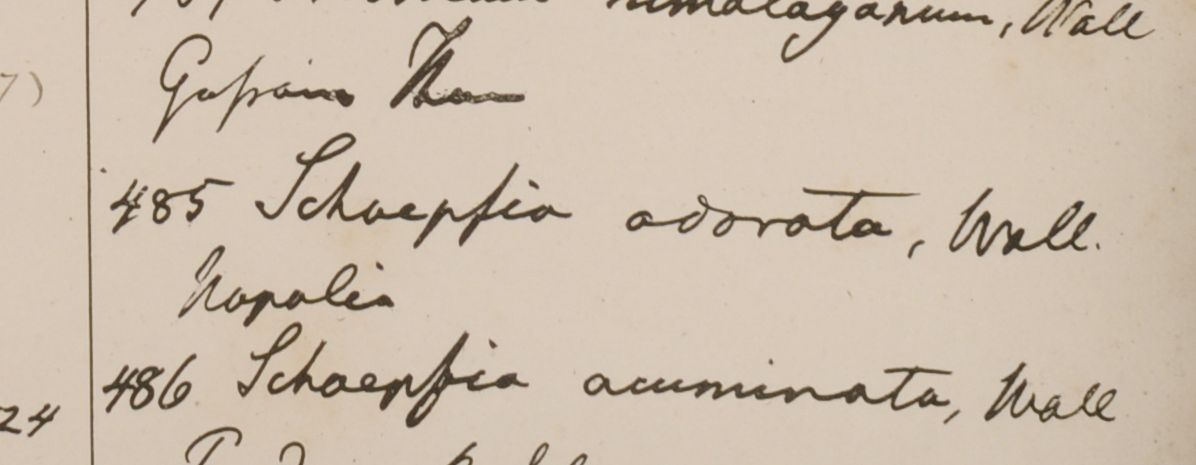 himalayanum, Wall
Gosain Than
485 Schoepfia odorata, Wall.
Napalia
486 Schoepfia acuminata, Wall
24